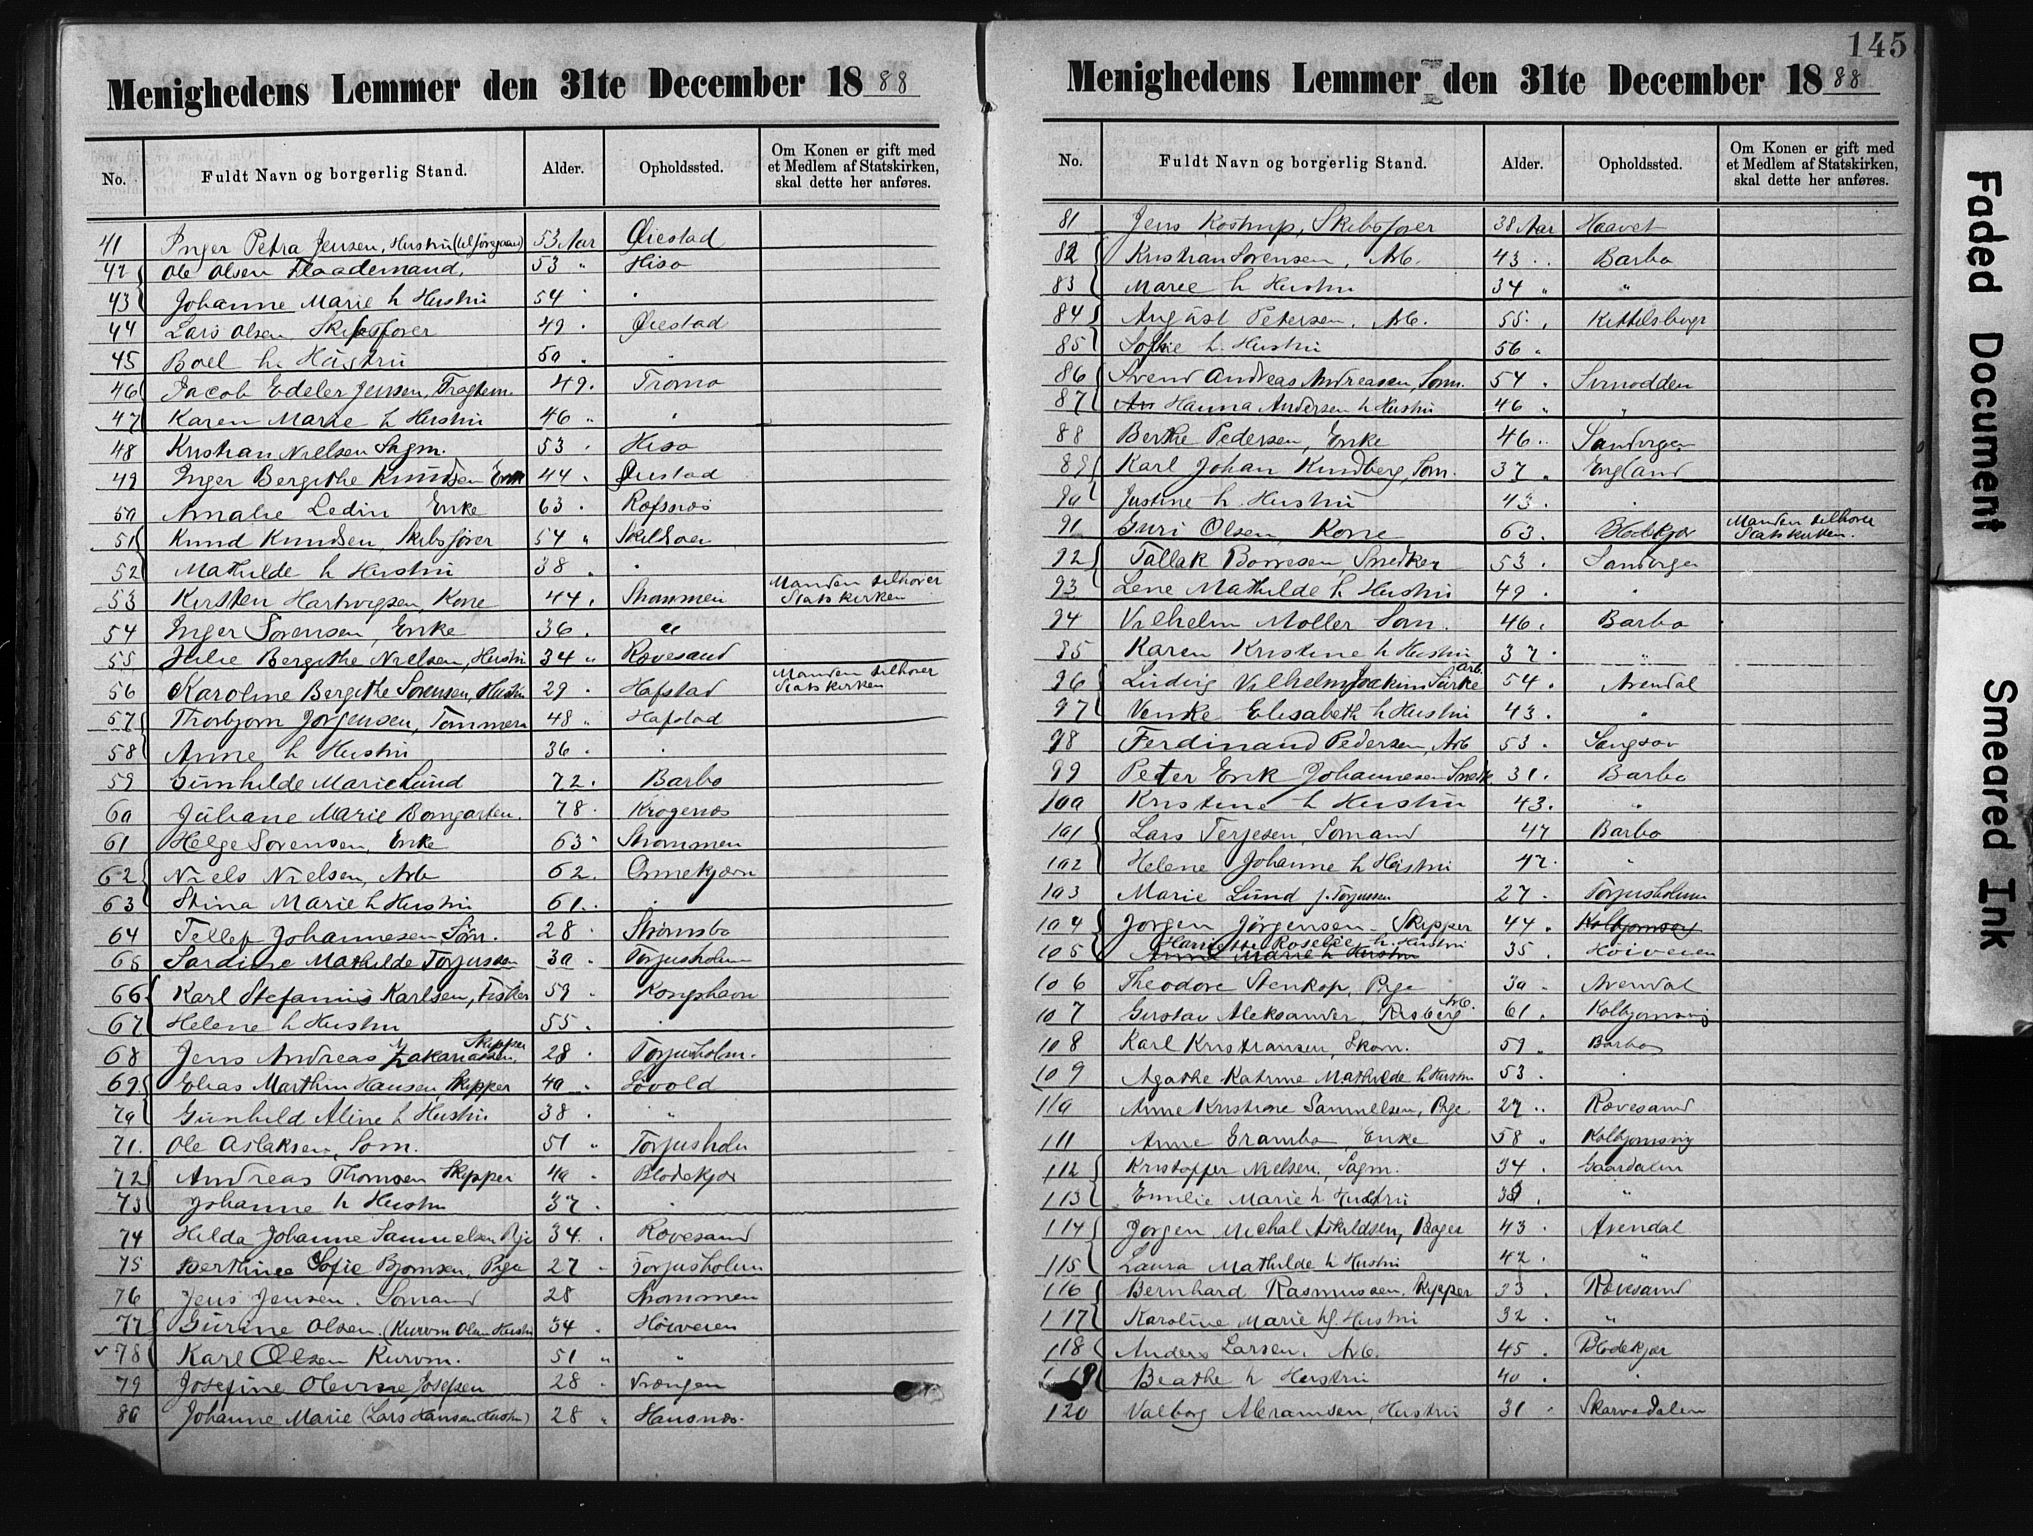 Menighedens Lemmer den 31te December 1888
No. | Fuldt Navn og borgerlig Stand. | Alder. | Opholdssted. | Om Konen er gift med et Medlem af Statskirken, skal dette her anføres.
41 Inger Petra Jensen, Hustru 53 Aar Øiestad
42 Ole Olsen Flaademand, 53 " Hisø
43 Johanne Marie h Hustru 54 "
44 Lars Olsen, Skibsfører 49 . Øiestad
45 Boel h. Hustru 50 "
46 Jacob Edeler Jensen, 49. Tromø
47 Karen Marie h Hustru 46 "
48 Kristian Nielsen Sagm. 53 . Hisø
49 Inger Bergithe Knudsen Enke 44 . Øiestad
50 Amalie Ledin Enke 63 . Refsnæs
51 Knud Knudsen, Skibsfører 54 "
52 Mathilde h Hustru 38 .
53 Kirsten Hartvigsen, Kone 44 . Strømmen Manden tilhører Statskirken
54 Inger Sørensen, Enke 36 . "
55 Julie Bergithe Nielsen, Hustru 34 " Rævesand
56 Karoline Bergithe Sørensen, Hustru 29 . Hafstad Manden tilhører Statskirken
57 Thorbjørn Jørgensen, Tømmerm 48 " Hafstad
58 Anne h Hustru 36 .
59 Gunhilde Marie Lund 72 . Barbo
60 Juliane Marie Bomgarten. 78 . Krøgenæs
61 Helge Sørensen, Enke 63 . Strømmen
62 Niels Nielsen, Arb 62 . Ormekjærn
63 Stina Marie h Hustru 61 .
64 Tellef Johannesen, Søm. 28 . Strømsbo
65 Sardine Mathilde Torjussen 30 . Torjusholm
66 Karl Stefanus Karlsen, Fisker 59 " Kongshavn
67 Helene h Hustru 55 .
68 Jens Andreas Zakariassen, Skipper 28 . Torjusholm.
69 Elias Marthin Hansen, Skipper 40 . Løvold
70 Gunhild Aline h Hustru 38 . "
71. Ole Aslaksen, Søm. 51 " Torjusholm
72 Andreas Thomsen Skipper 40 . Blødekjær
73 Johanne h Hustru 37 .
74 Hilda Johanne Samuelsen Pige 34 . Rævesand
75 Berthinee Sofie Bjørnsen, Pige 27 . Torjusholm
76 Jens Jensen. Sømand 28 Strømmen
77 Gurine Olsen, (Kurvm Olsen Hustru 34 . Høiveien
78 Karl Olsen Kurvm. 51 " "
79 Josefine Olevine Josefsen 28 . Vrængen
80 Johanne Marie (Lars Hansen Hustru) 28 " Hausnæs.
145
Menighedens Lemmer den 31te December 1888
No. | Fuldt Navn og borgerlig Stand. | Alder. | Opholdssted. | Om Konen er gift med et Medlem af Statskirken, skal dette her anføres.
81 Jens Kostrup, Skibsfører 38 Aar Haavet
82 Kristian Sørensen, Arb. 43 . Barbo
83 Marie h Hustru 34 " "
84 August Petersen, Arb. 55 . Kittelsbugt
85 Sofie h. Hustru 56 "
86 Svend Andreas Andreasen, Søm. 54 . Svinodden
87 An Hanna Andersen h Hustru 46 " "
88 Berthe Pedersen, Enke 46 . Sandvigen
89 Karl Johan Kindberg, Søm. 37 . England
90 Justine h. Hustru 43 . .
91 Guri Olsen, Kone 63 . Blødekjær Manden tilhører Statskirken.
92 Tallak Børresen, Snedker 53 . Sandvigen
93 Lene Mathilde h Hustru 49 . "
94 Vilhelm Møller Søm. 46 . Barbo
85 Karen Kristine h Hustru 37 . "
96 Ludvig Vilhelm Joakim Särke arb. 54 . Arendal
97 Venke Elisabeth h Hustru 43 . "
98 Ferdinand Pedersen, Arb 53 . Langsæv
99 Peter Erik Johannesen Snedk. 31 . Barbo
100 Kristine h Hustru 43 . "
101 Lars Terjesen, Sømand 47 Barbo
102 Helene Johanne h Hustru 47 . "
103 Marie Lund f. Torjussen 27 . Torjusholm
104 Jørgen Jørgensen, Skipper 44 . Kolbjørnsvig
105 Harriette Roselie h. Hustru Anne Marie h Hustru 35 . Høiveien
106 Theodore Stenkop, Pige 30 . Arendal
107 Gustav Aleksander, Forsberg Arb. 61 . Kolbjørnsvig
108 Karl Kristiansen, Skom. 59 " Barbo
109 Agathe Katrine Mathilde h Hustru 53 . .
110 Anne Kristine Samuelsen, Pige 27 . Rævesand
111 Anne Grambo, Enke 58 " Kolbjørnsvig
112 Kristoffer Nielsen, Sagm. 34 . Gaardalen
113 Emilie Marie h Hustru 39 . "
114 Jørgen Michal Askildsen, Bager 43 . Arendal
115 Laura Mathilde h Hustru 42 . "
116 Bernhard Rasmussen, Skipper 33 . Rævesand
117 Karoline Marie h Hustru 32 . "
118 Anders Larsen, Arb. 45 . Blødekjær
119 Beathe h Hustru 40 . .
120 Valborg Abramsen, Hustru 31 . Skarvedalen
Faded Document
Smeared Ink